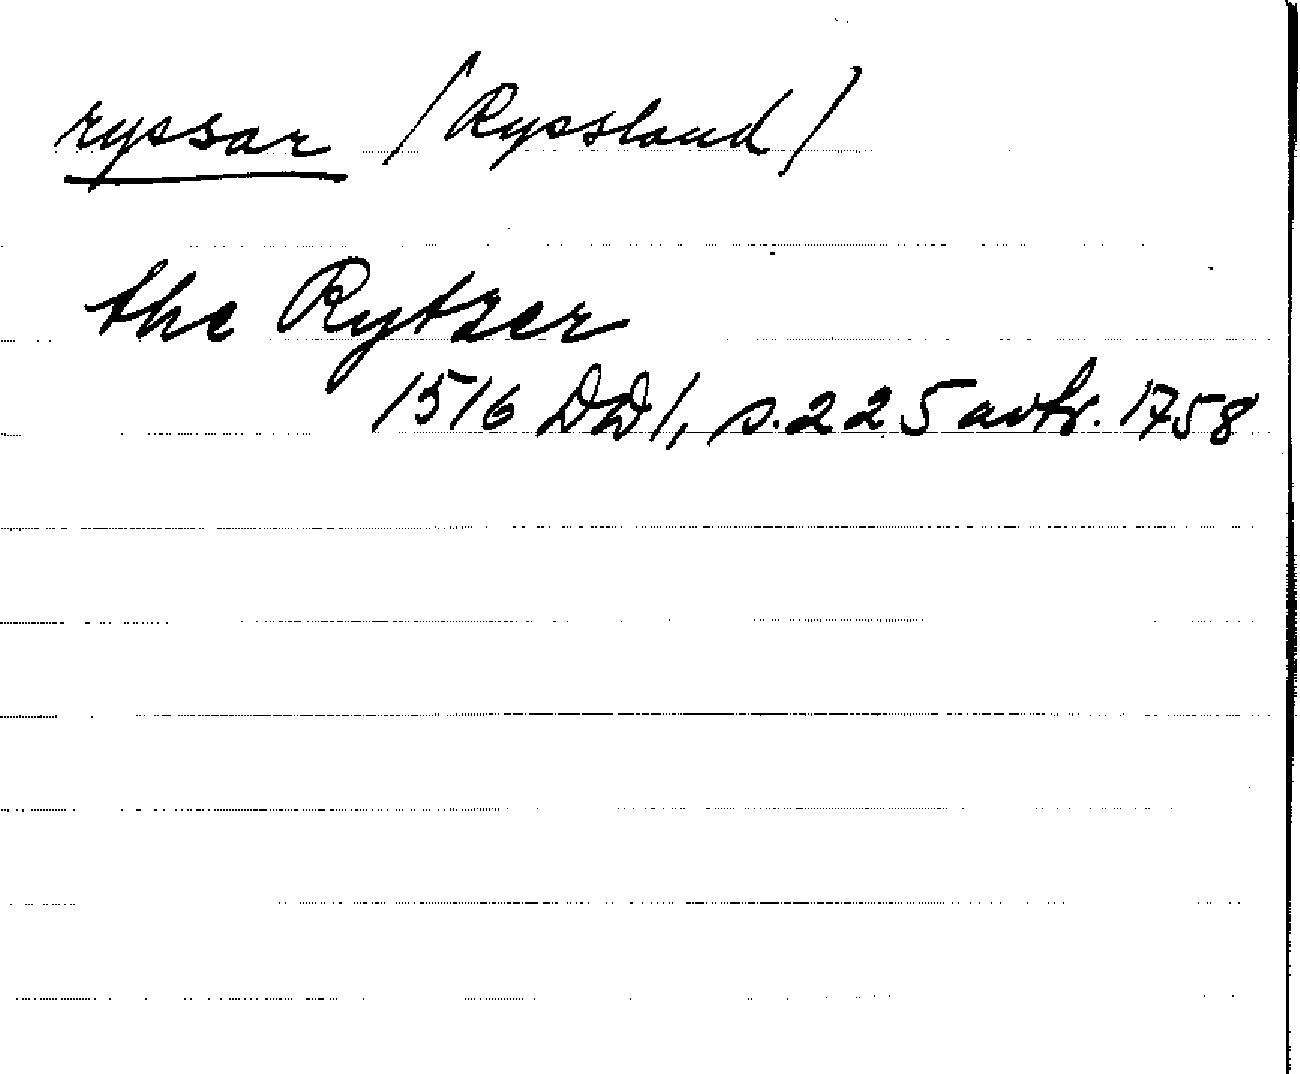 ryssar /Ryssland/
the Rytzer
1516 DD1, s. 225 avtr. 1758